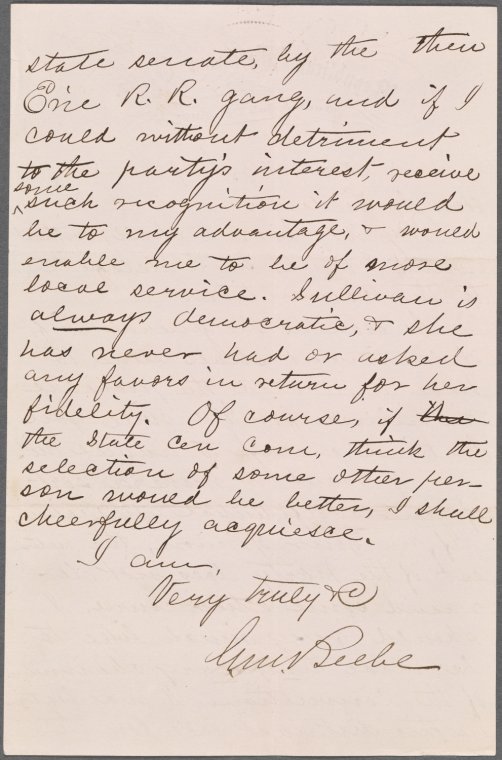 state senate, by the then
Erie R. R. gang, and if I
could without detriment
to the party's interest, receive
some
such recognition it would
be to my advantage, & would
enable me to be of more
local service. Sullivan is
always democratic, & she
has never had or asked
any favors in return for her
fidelity. Of course, if the
the State Cen Com, think the
selection of some other per-
son would be better, I shall
cheerfully acquiesce.
I am,
Very truly &c
Geo. M. Beebe